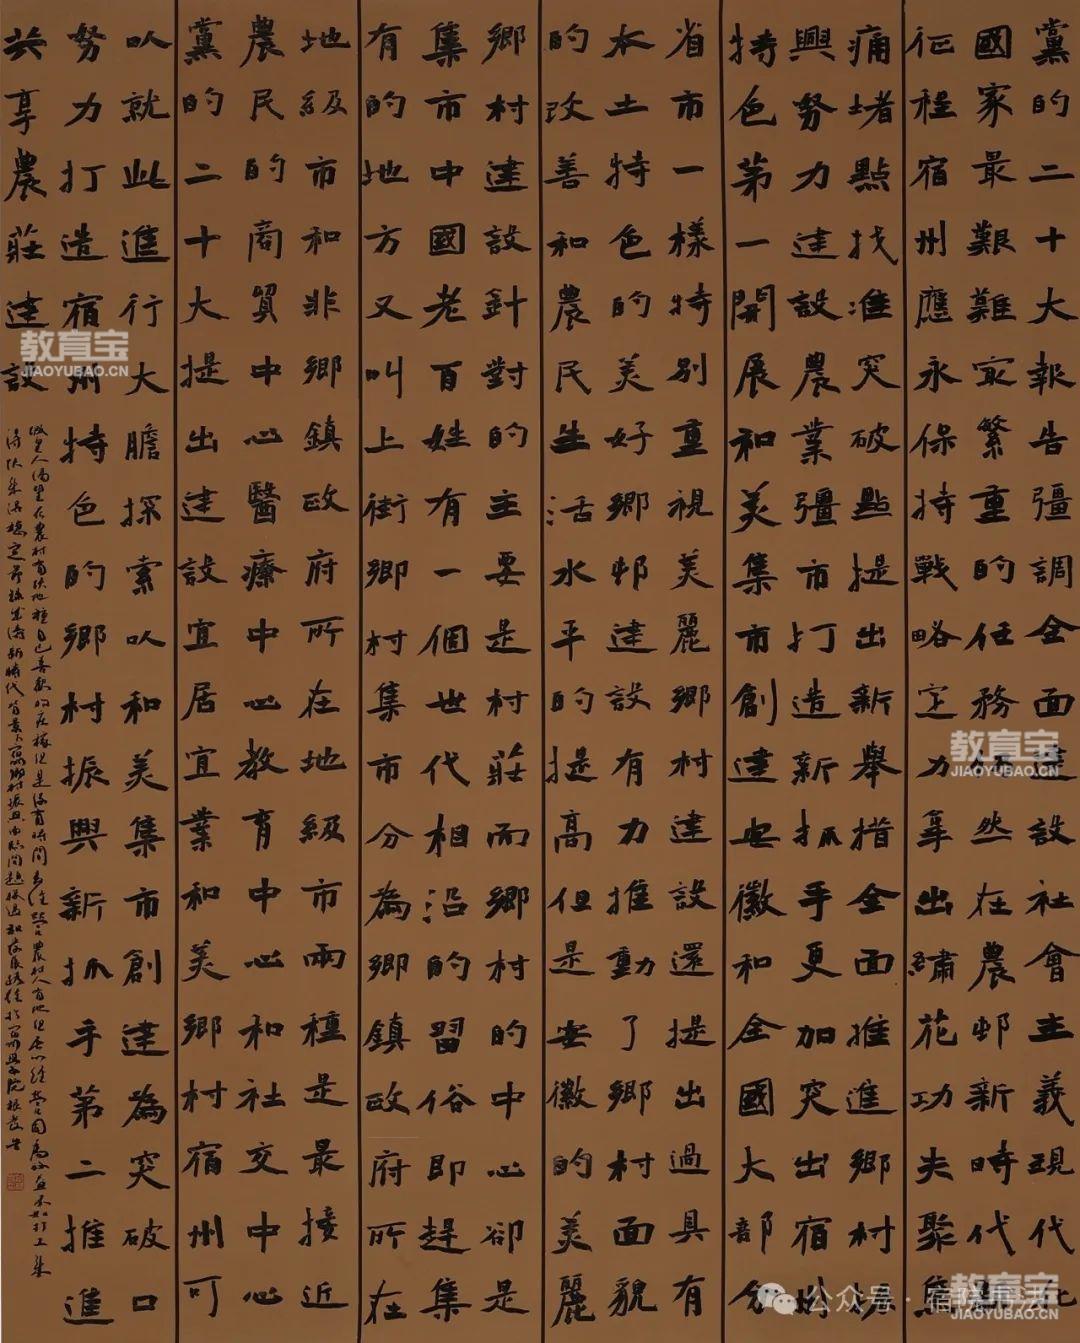 黨的二十大報告彊調全面建設社會主義現代化
國家最艱難冣繁重的任務仍然在農邨新時代新
征程宿州應永保持戰略定力拿出繡花功夫聚焦
痛堵點找准突破點提出新舉措全面推進鄉村振
興努力建設農業彊市打造新抓手更加突出宿州
持色第一開展和美集市創建安徽和全國大部分
省市一樣特别重視美麗鄉村建設還提出過具有
本土特色的美好鄉邨建設有力推動了鄉村面貌
的改善和農民生活水平的提高但是安徽的美麗
鄉村建設針對的主要是村莊而鄉村的中心卻是
集市中國老百姓有一個世代相沿的習俗即趕集
有的地方又叫上街鄉村集市分為鄉鎮政府所在
地級市和非鄉鎮政府所在地級市兩種是最接近
農民的商貿中心醫療中心教育中心和社交中心
黨的二十大提出建設宜居宜業和美鄉村宿州可
以就此進行大膽探索以和美集市創建為突破口
努力打造宿州持色的鄉村振興新抓手第二推進
共享農莊建設
教育宝
JIAOYUBAO.CN
教育宝
JIAOYUBAO.CN
教育宝
JIAOYUBAO.CN
公众号·宿